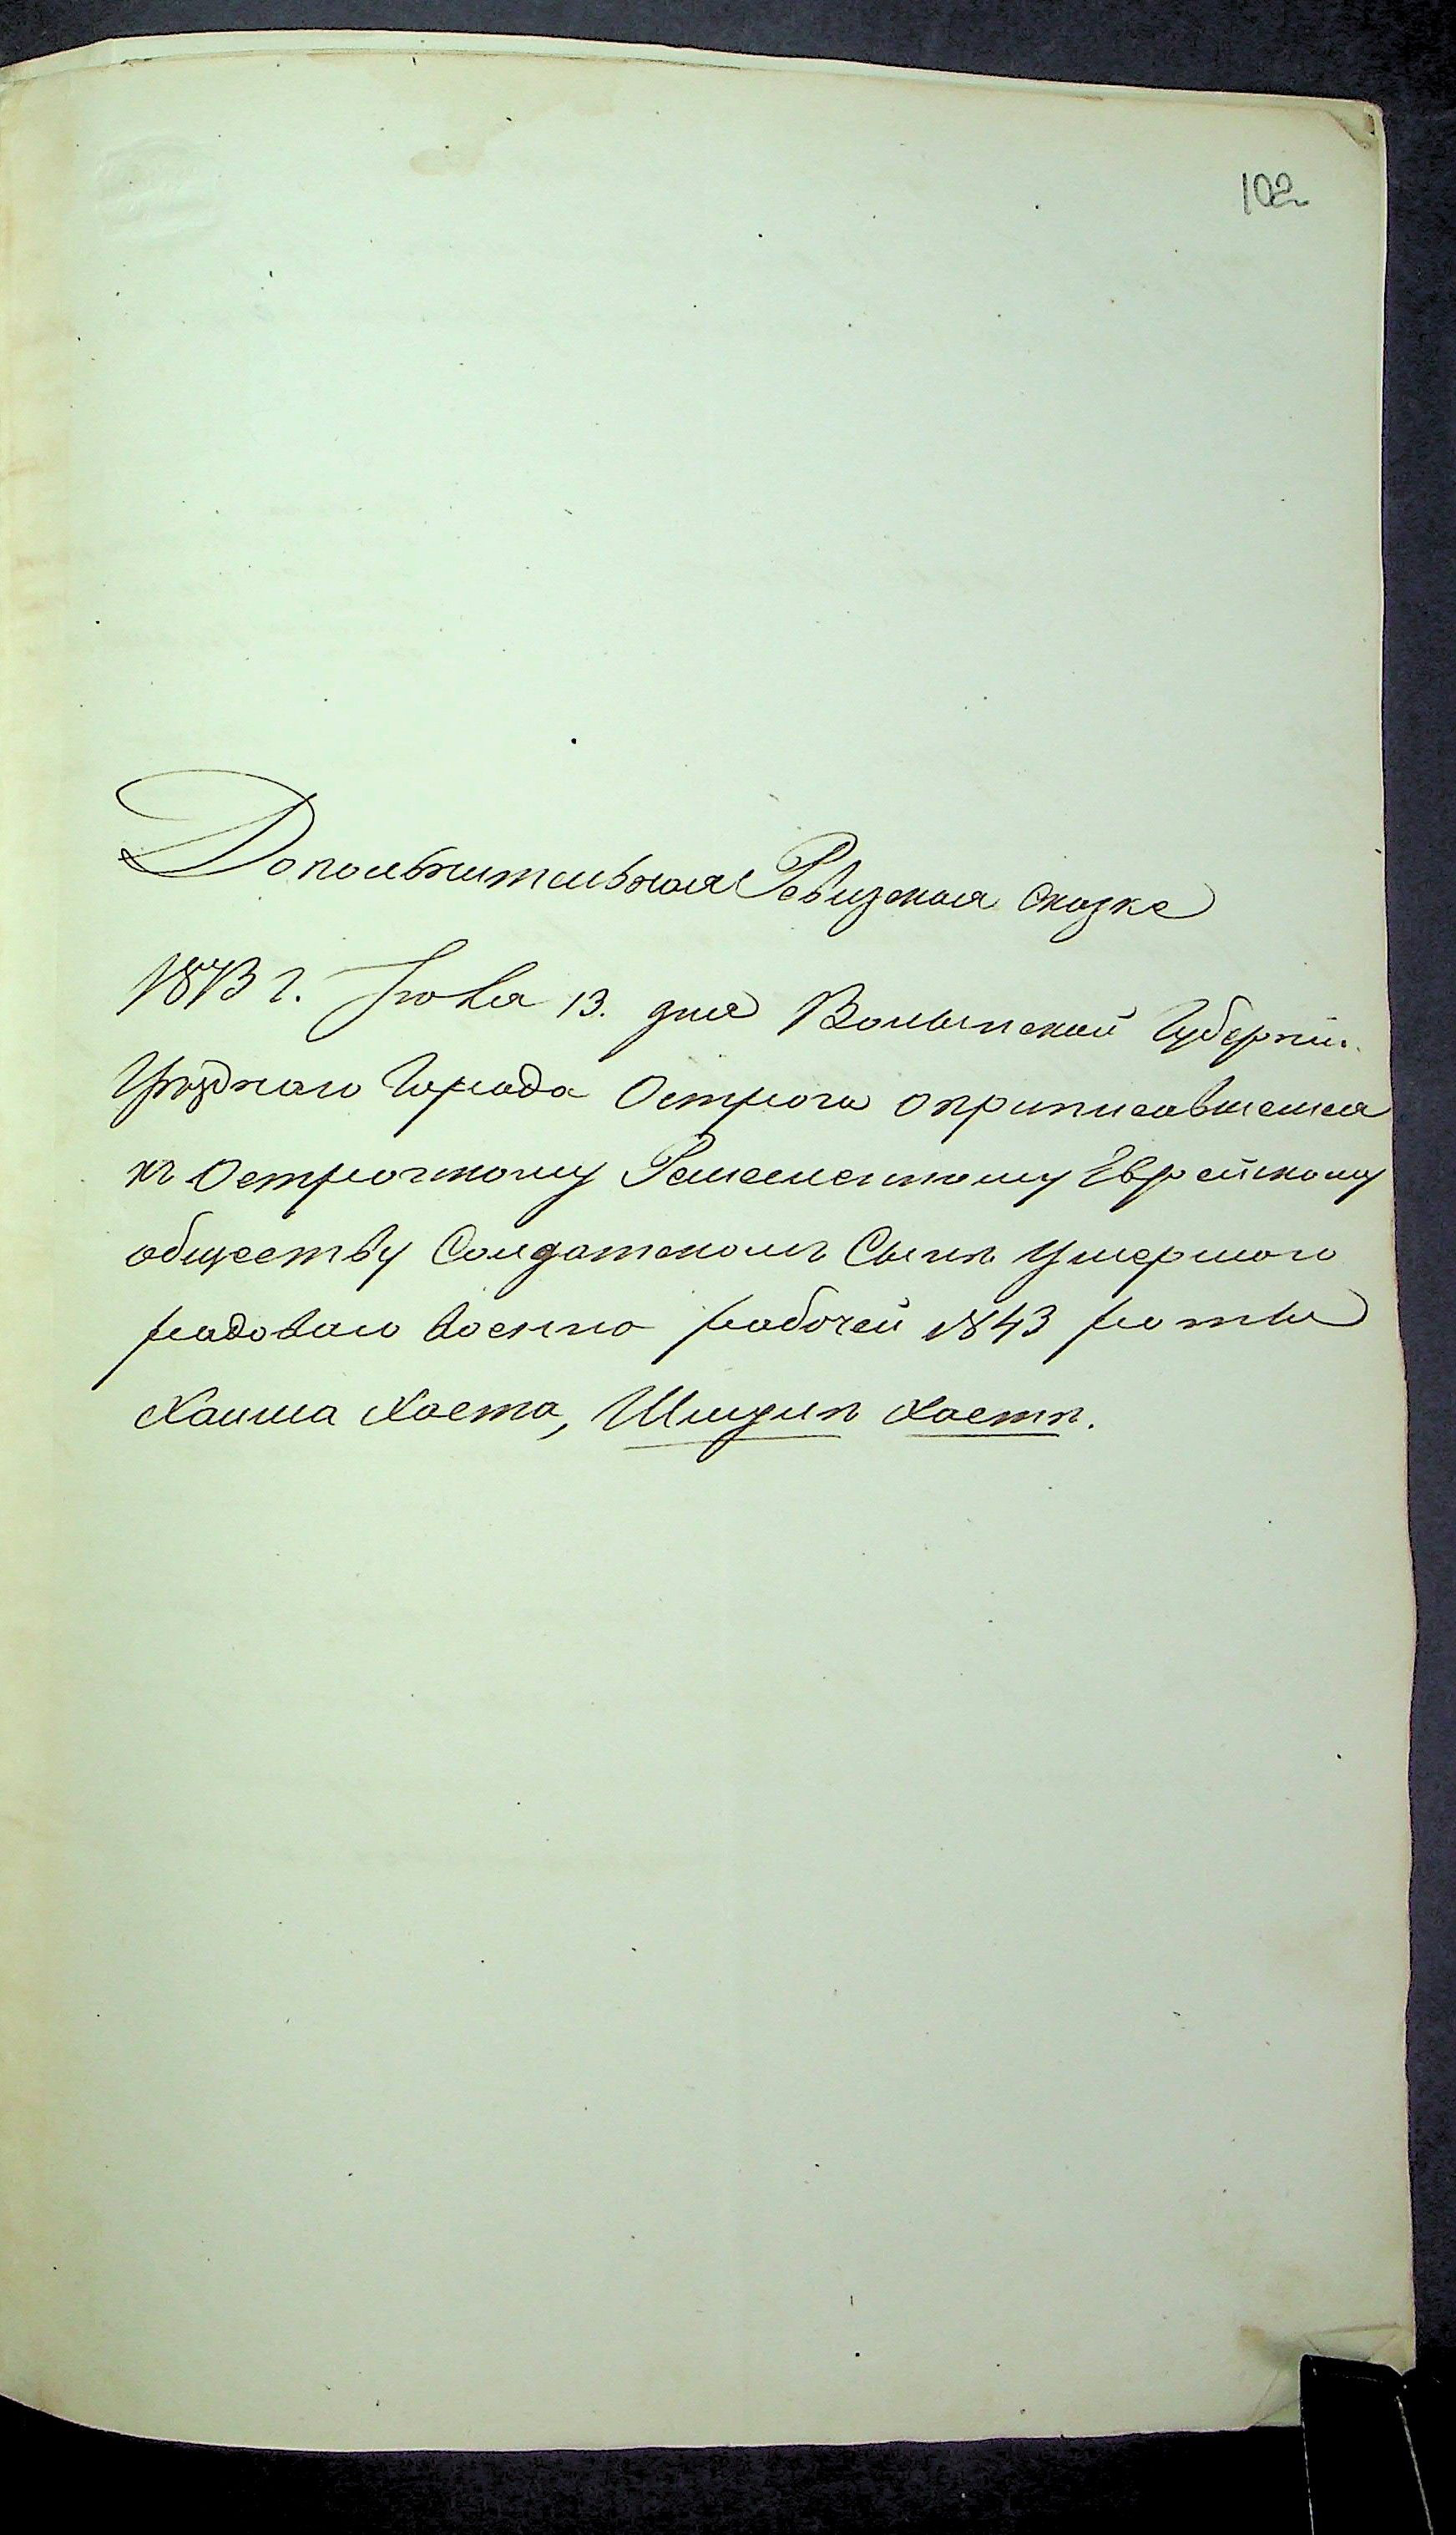 102
Дополнительная Ревизская сказка
1873 г. Іюля 13. дня Волынской Губерніи
Уѣзднаго Города Острога о приписавшемся
къ Острожскому Ремесленному Еврейскому
обществу Солдатскомъ Сынѣ Умершаго
рядоваго военно рабочей № 43 роты
Хаима Хаета, Хаетѣ.